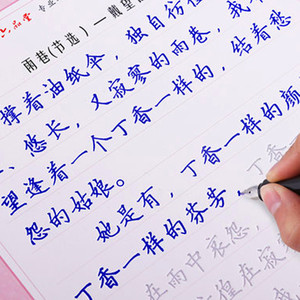 六品堂 专业
雨巷(节选)—戴望
撑着油纸伞，独自彷
、悠长，又寂寥的雨巷，我
望逢着一个丁香一样的，结着愁
怨的姑娘。
她是有，丁香一样的颜
丁香一样的芬芳，丁香一
在雨中哀怨，
在寂